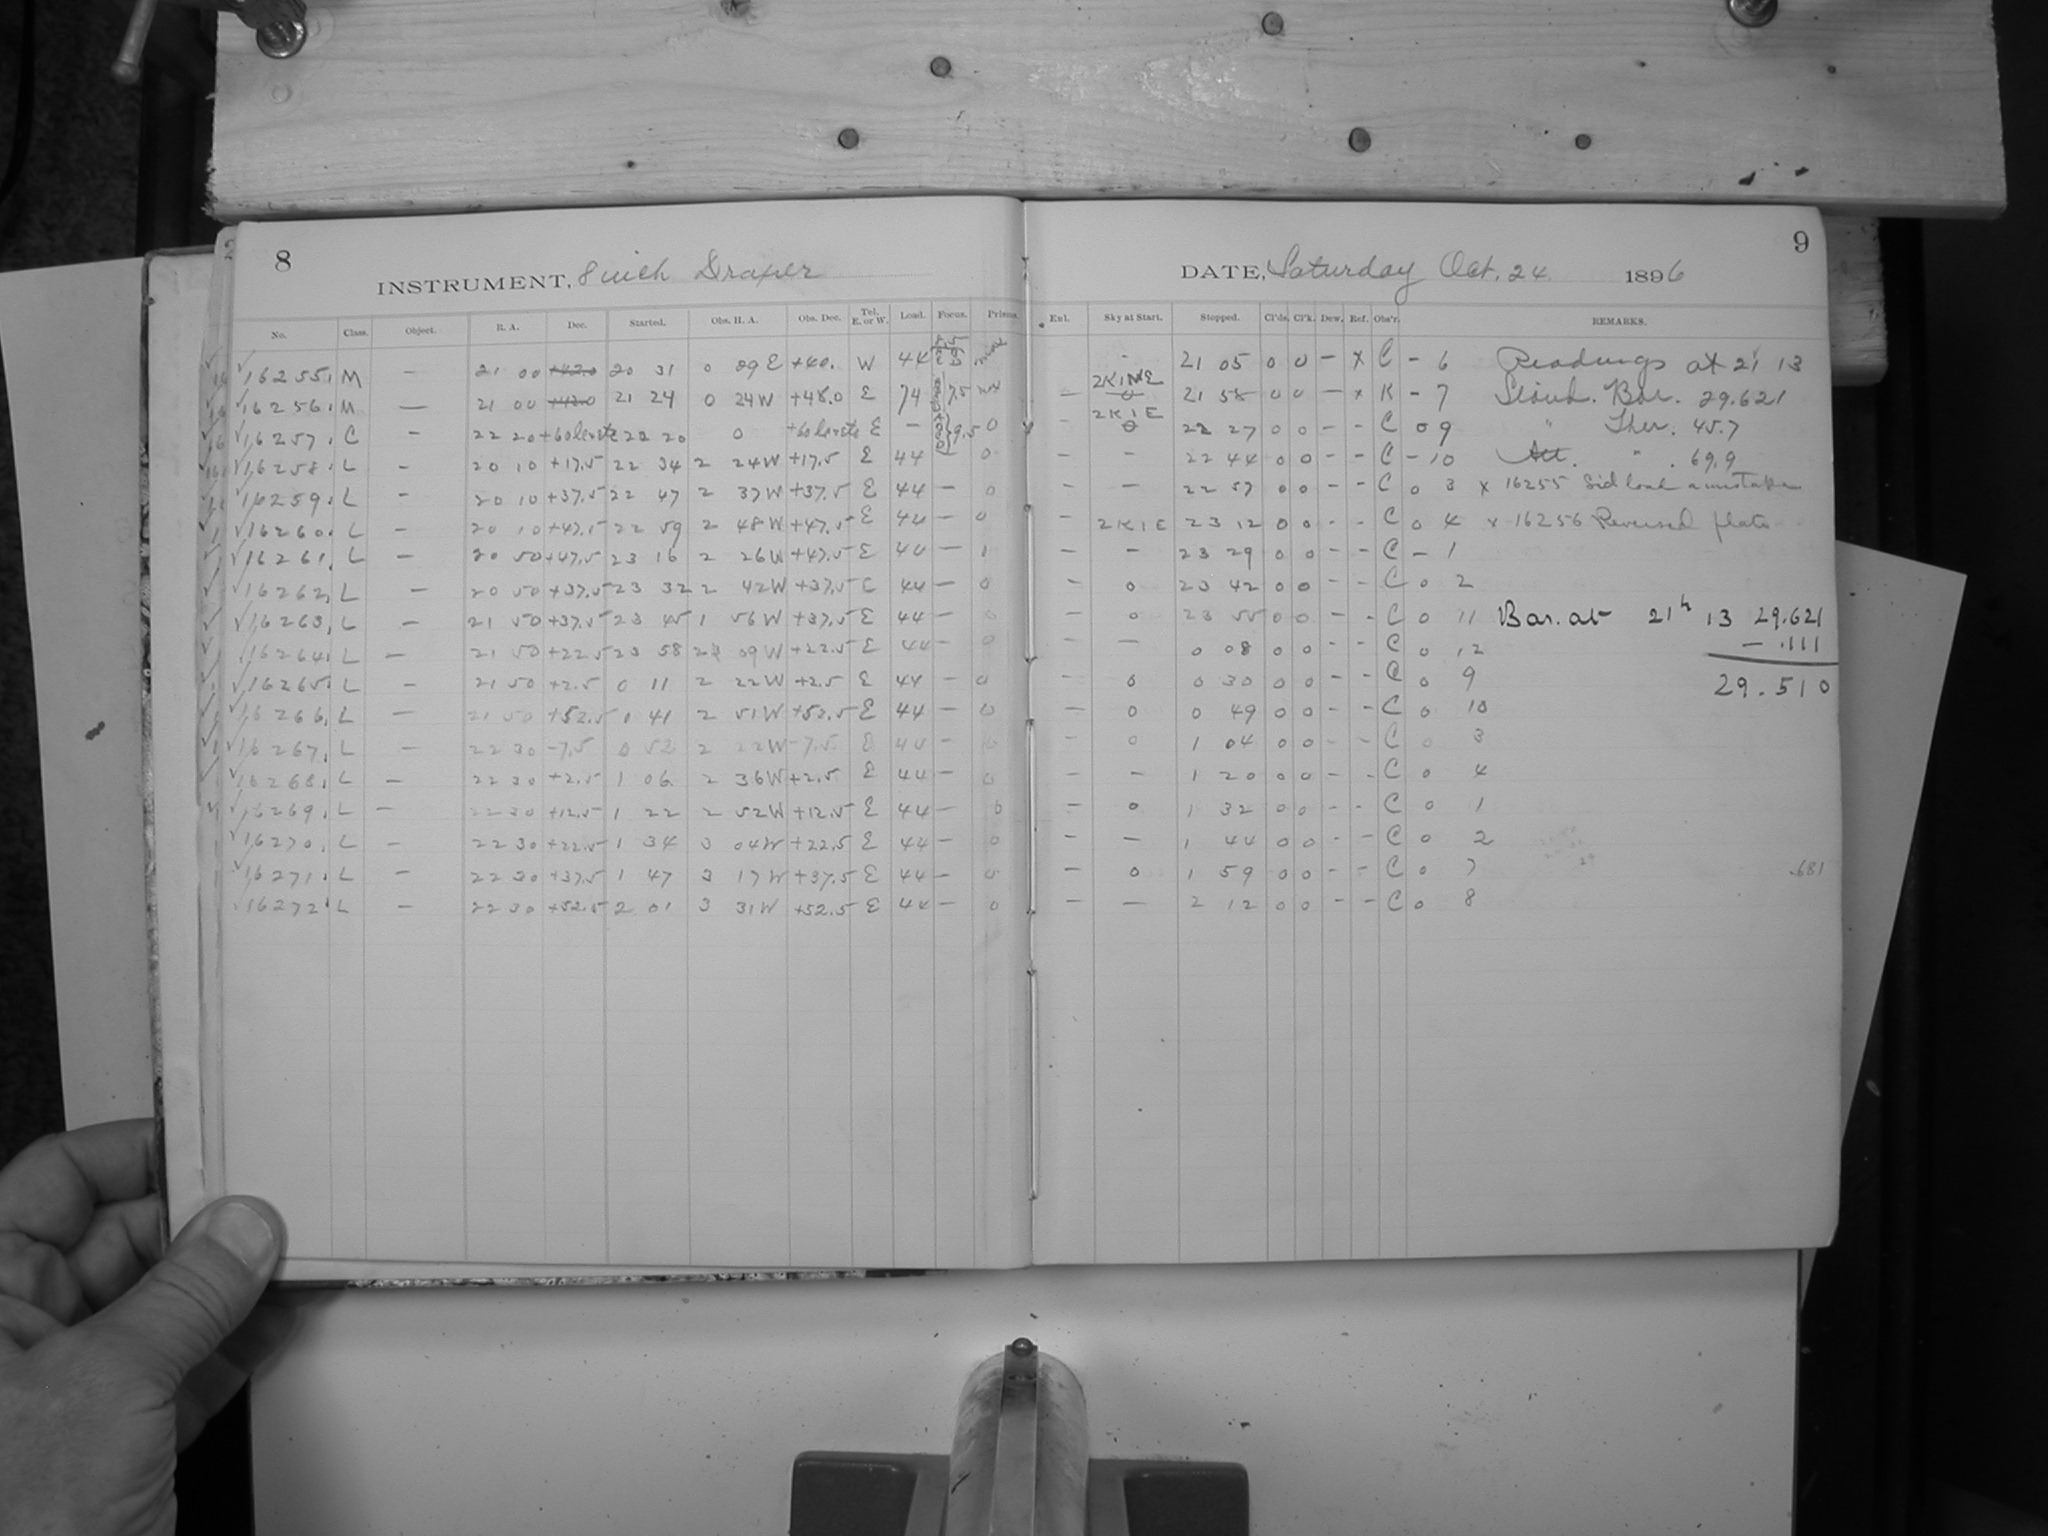 8
INSTRUMENT, 8 inch Draper
No. Class. Object. R. A. Dec. Started. Obs. H. A. Obs. Dec. Tel. E. or W. Load. Focus. Prisms.
16255. M — 21 00 +42.0 20 31 0 29 E +40. W 44
16256. M — 21 00 +42.0 21 24 0 24W +48.0 E 74 7.5
16257. C — 22 20 22 20 0 E — 9.5 0
16258. L - 20 10 +17.5 22 34 2 24W +17.5 E 44 - 0
16259. L - 20 10 +37.5 22 47 2 37W +37.5 E 44 — 0
16260. L - 20 10 +47.5 22 59 2 48W +47.5 E 44 - 0
16261. L — 20 50 +47.5 23 16 2 26W +47.5 E 44 — 1
16262. L — 20 50 +37.5 23 32 2 42W +37.5 E 44 — 0
16263. L — 21 50 +37.5 23 45 1 56W +37.5 E 44 — 0
16264. L — 21 50 +22.5 23 58 2 09W +22.5 E 44 - 0
16265. L — 21 50 +2.5 0 11 2 22W +2.5 E 44 - 0
16266. L — 21 50 +52.5 41 2 51W +52.5 E 44 — 0
16267. L — 22 30 -7.5 0 52 2 22W -7.5 E 44 - 0
16268. L — 22 30 +2.5 1 06 2 36W +2.5 E 44 — 0
16269. L — 22 30 +12.5 1 22 2 52W +12.5 E 44 — 0
16270. L - 22 30 +22.5 1 34 3 04W +22.5 E 44 — 0
16271. L — 22 30 +37.5 1 47 3 17W +37.5 E 44 — 0
16272. L — 22 30 +52.5 2 01 3 31W +52.5 E 44 — 0
9
DATE, Saturday Oct. 24 1896
Enl. Sky at Start. Stopped. Cl'ds. Cl'k. Dew. Ref. Obs'r. REMARKS.
- 21 05 0 0 — x C - 6 Readings at 21 13
— 2K1NE 0 21 58 0 0 — x K - 7 Stand. Bar. 29.621
- 2K1E 0 22 27 0 0 - - C 0 9 " Ther. 45.7
- - 22 44 0 0 - - C - 10 Att. " . 69.9
- — 22 57 0 0 - - C 0 3 x 16255 Sid a mistake
2K1E 23 12 0 0 - - C 0 4 x 16256 Reversed plate
— - 23 29 0 0 - - C — 1
- 0 23 42 0 0 - - C 0 2
- 0 23 55 0 0 - - C 0 11 Bar. at 21h 13 29.621
- — 0 08 0 0 - - C 0 12 — .111
- 0 0 30 0 0 - - C 0 9 29.510
— 0 0 49 0 0 - - C 0 10
- 0 1 04 0 0 - - C 0 3
- - 1 20 0 0 - - C 0 4
- 0 1 32 0 0 - - C 0 1
- — 1 44 0 0 - - C 0 2
— 0 1 59 0 0 - - C 0 7 .681
- — 2 12 0 0 - - C 0 8